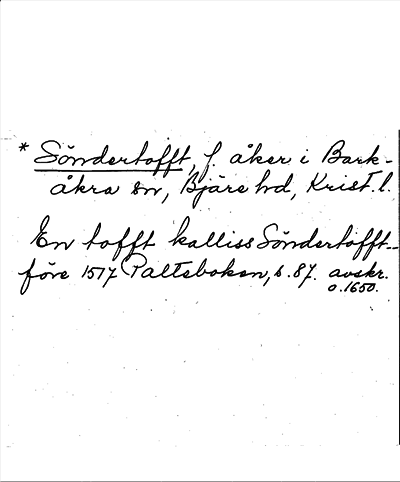 * Söndertofft, f. åker i Bark-
åkra sn, Bjäre hd, Krist. l.
En tofft kalliss Söndertofft...
före 1517 Palteboken, s. 87. avskr.
o. 1650.